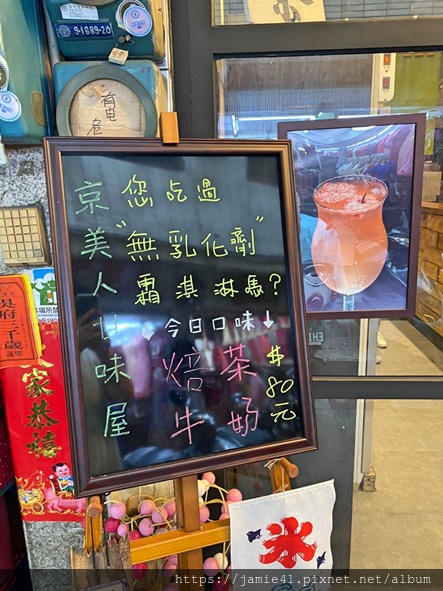 京美人甘味屋
您吃過
"無乳化劑"
霜淇淋嗎?
↓今日口味↓
焙茶
牛奶
$80元
有電危
9-1689-20
吳府三千歲
家恭禧
冰
https://jamie41.pixnet.net/album